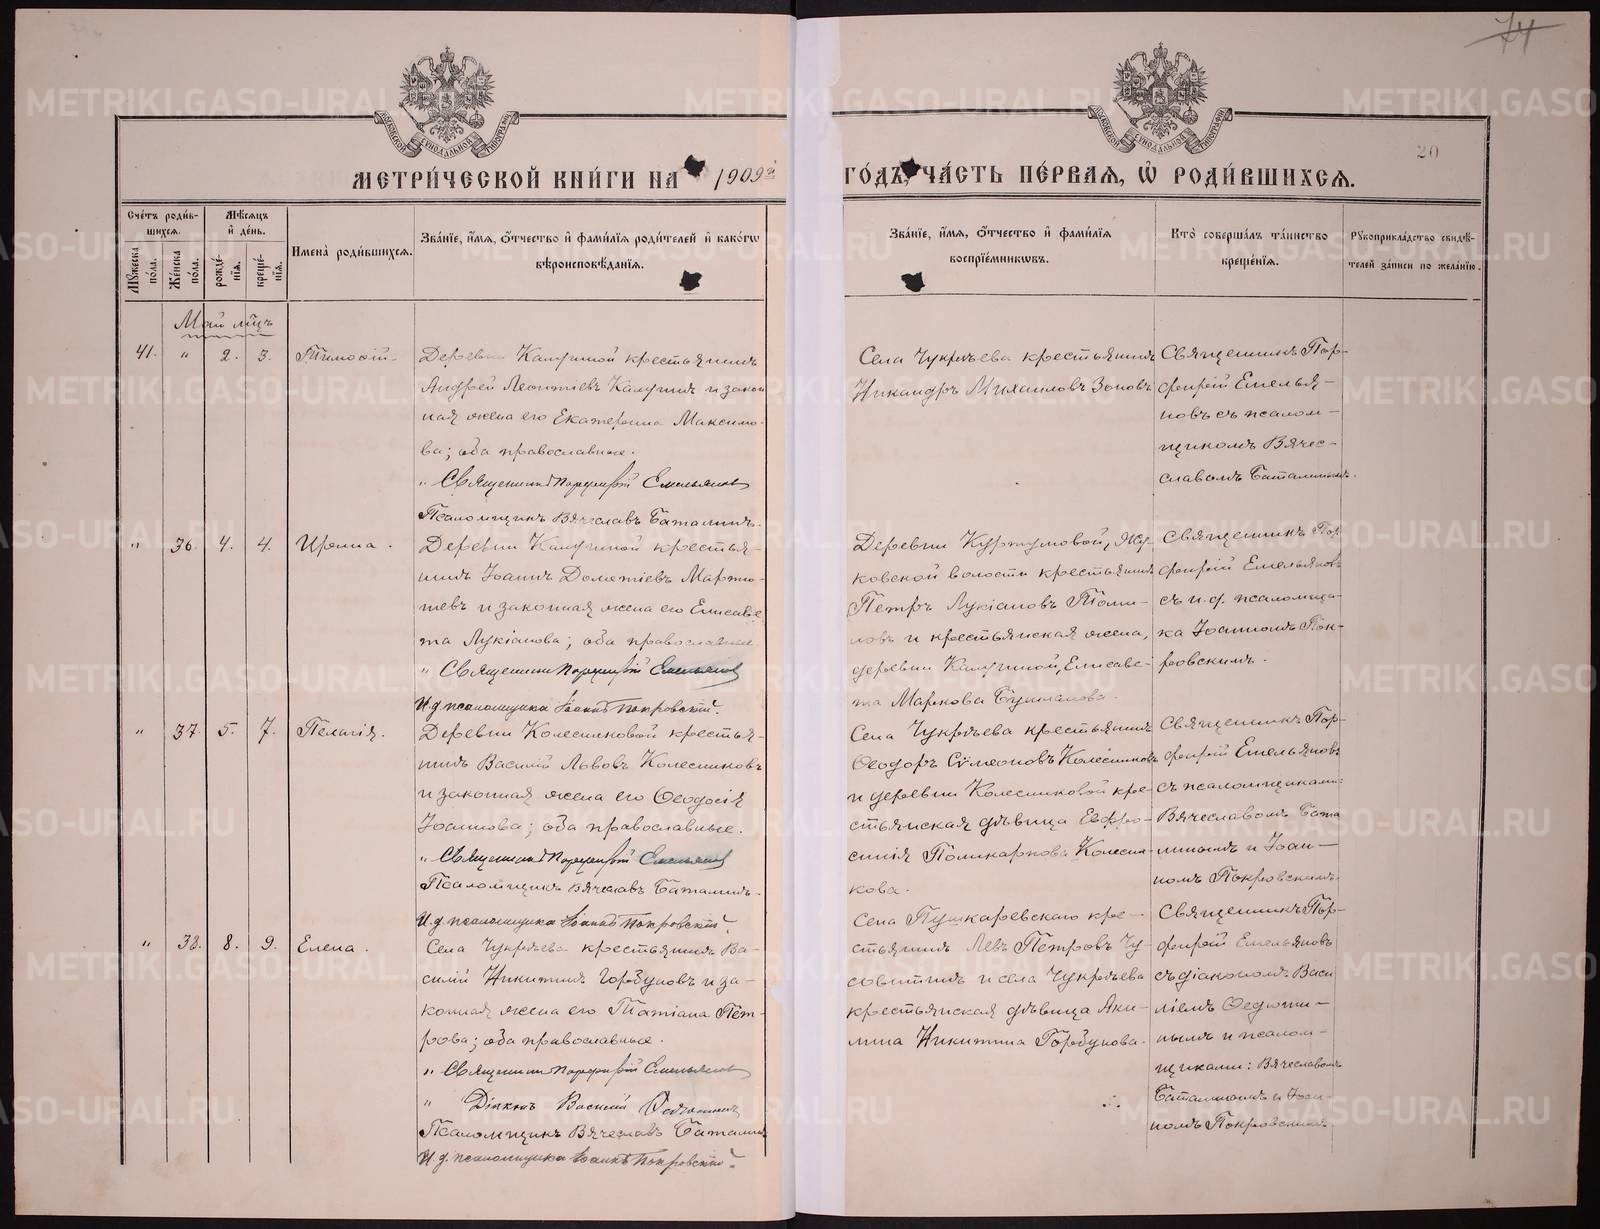 74
20
МЕТРИ́ЧЕСКОЙ КНИ́ГИ НА 1909й
ГО́ДЪ, ЧА́СТЬ ПЕ́РВАЯ, Ѽ РОДИ́ВШИХСЯ.
Сче́тъ роди́в-
шихся.
Мꙋ́жеска по́ла.
Же́нска по́ла.
Мѣ́сяцъ
и҆ де́нь.
рожде́-
нїя.
креще́-
нїя.
И҆мена̀ роди́вшихся.
Зва́нїе, и҆́мя, ѻ҆́тчество и҆ фами́лїя роди́телей и҆ како́гѡ
вѣроисповѣ́данїя.
Зва́нїе, и҆́мя, ѻ҆́тчество и҆ фами́лїя
воспрїе́мникѡвъ.
Кто̀ соверша́лъ та́инство
креще́нїя.
Рꙋкоприкла́дство свидѣ́-
телей за́писи по жела́нїю.
Май мцъ
41. " 2. 3. Тимоѳій
Деревни Калугиной крестьянинъ
Андрей Леонтіевъ Калугинъ и закон
ная жена его Екатерина Максимо-
ва; оба православные.
" Священникъ Порфирій Емельяновъ
Псаломщикъ Вячеславъ Баталинъ.
Села Чукрѣева крестьянинъ
Никандръ Михаиловъ Зоновъ
Священникъ Пор-
фирій Емелья-
новъ съ псалом-
щикомъ Вячес-
славомъ Баталинымъ.
" 36. 4. 4. Ирина.
Деревни Калугиной крестья-
нинъ Іоаннъ Дометіевъ Мартю-
шевъ и законная жена его Елисаве
та Лукіанова; оба православные.
" Священникъ Порфирій Емельяновъ
И.д. псаломщика Іоаннъ Покровскій.
Деревни Куртумовой,
ковской волости крестьянинъ
Петръ Лукіановъ
новъ и крестьянская жена,
деревни Калугиной, Елисаве-
та Маркова
Священникъ Пор
фирій Емельяновъ
съ и.д. псаломщи-
ка Іоанномъ Пок-
ровскимъ.
" 37. 5. 7. Пелагія.
Деревни Колесниковой крестья-
нинъ Василій Львовъ Колесниковъ
и законная жена его Ѳеодосія
Іоаннова; оба православные.
" Священникъ Порфирій Емельяновъ
Псаломщикъ Вячеславъ Баталинъ.
И.д. псаломщика Іоаннъ Покровскій.
Села Чукрѣева крестьянинъ
Ѳеодоръ Сѵмеоновъ Колесниковъ
и деревни Колесниковой кре-
стьянская дѣвица Евфро-
синія Поликарпова Колесни-
кова.
Священникъ Пор-
фирій Емельяновъ
съ псаломщиками:
Вячеславомъ Бата
линымъ и Іоан-
номъ Покровскимъ.
" 38. 8. 9. Елена.
Села Чукрѣева крестьянинъ Ва-
силій Никитинъ Горбуновъ и за-
конная жена его Татіана Пет-
рова; оба православные.
" Священникъ Порфирій Емельяновъ
" Діаконъ Василій Ѳедюшинъ
Псаломщикъ Вячеславъ Баталинъ
И.д. псаломщика Іоаннъ Покровскій.
Села Пушкаревскаго кре-
стьянинъ Левъ Петровъ Чу-
совитинъ и села Чукрѣева
крестьянская дѣвица Аки-
лина Никитина Горбунова.
Священникъ Пор-
фирій Емельяновъ
съ діакономъ Васи
ліемъ Ѳедюши-
нымъ и псалом-
щиками: Вячеславомъ
Баталинымъ и Іоан-
номъ Покровскимъ.